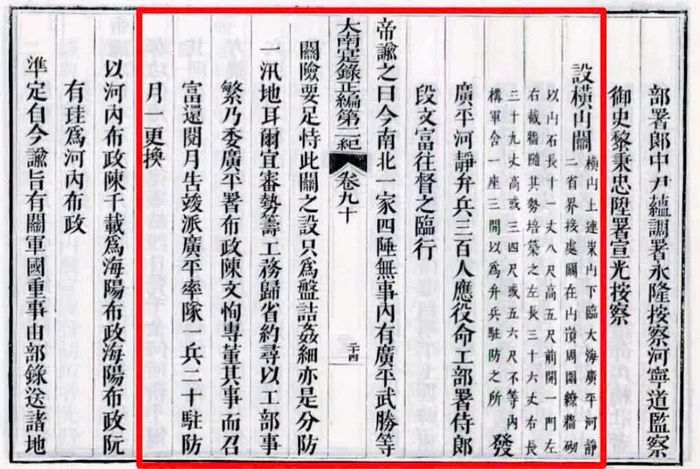 部署郎中尹蘊調署永隆按察河寧道監察
御史黎秉忠陞署宣光按察
設橫山關
橫山上連峯山下臨大海廣平河靜
二省界接處關在山頂周圍繚牆砌
以山石長十一丈八尺高五尺前開一門左
右截牆隨其勢培築之左長三十六丈右長
三十九丈高或三四尺或五六尺不等內
構軍舍一座三間以為弁兵駐防之所
發
廣平河靜弁兵三百人應役命工部署侍郎
段文富往督之臨行
帝諭之曰今南北一家四陲無事內有廣平武勝等
大南寔錄正編第二紀 卷九十 二十四
關險要足恃此關之設只為盤詰姦細亦是分防
一汛地耳爾宜審勢籌工務歸省約尋以工部事
繁乃委廣平署布政陳文恂專董其事而召
富還閱月告竣派廣平率隊一兵二十駐防
月一更換
以河內布政陳千載爲海陽布政海陽布政阮
有珪爲河內布政
準定自今諭旨有關軍國重事由部錄送諸地